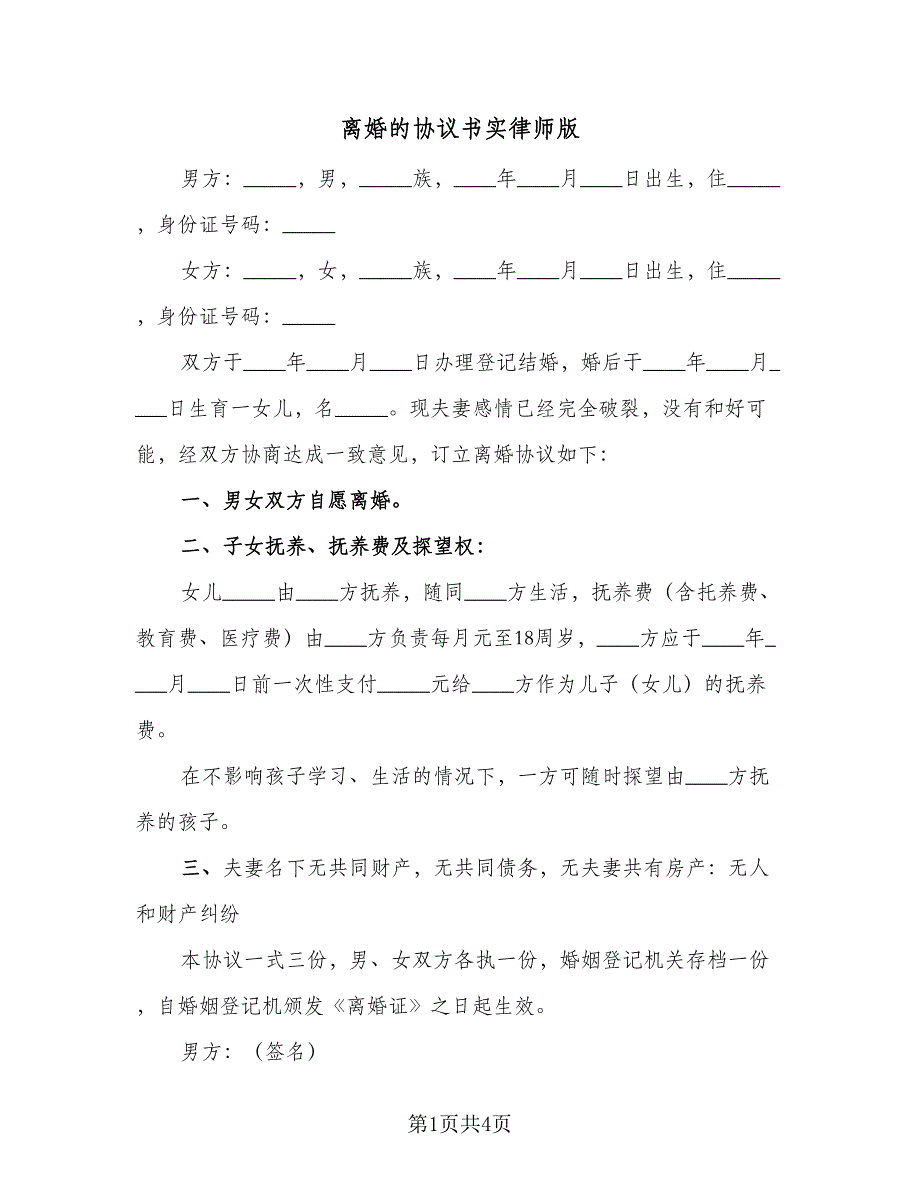 离婚的协议书实律师版
男方：_____，男，_____族，____年____月____日出生，住_____
，身份证号码：_____
女方：_____，女，_____族，____年____月____日出生，住_____
，身份证号码：_____
双方于____年____月____日办理登记结婚，婚后于____年____月_
___日生育一女儿，名_____。现夫妻感情已经完全破裂，没有和好可
能，经双方协商达成一致意见，订立离婚协议如下：
一、男女双方自愿离婚。
二、子女抚养、抚养费及探望权：
女儿_____由____方抚养，随同____方生活，抚养费（含托养费、
教育费、医疗费）由____方负责每月元至18周岁，____方应于____年_
___月____日前一次性支付_____元给____方作为儿子（女儿）的抚养
费。
在不影响孩子学习、生活的情况下，一方可随时探望由____方抚
养的孩子。
三、夫妻名下无共同财产，无共同债务，无夫妻共有房产：无人
和财产纠纷
本协议一式三份，男、女双方各执一份，婚姻登记机关存档一份
，自婚姻登记机颁发《离婚证》之日起生效。
男方：（签名）
第1页共4页